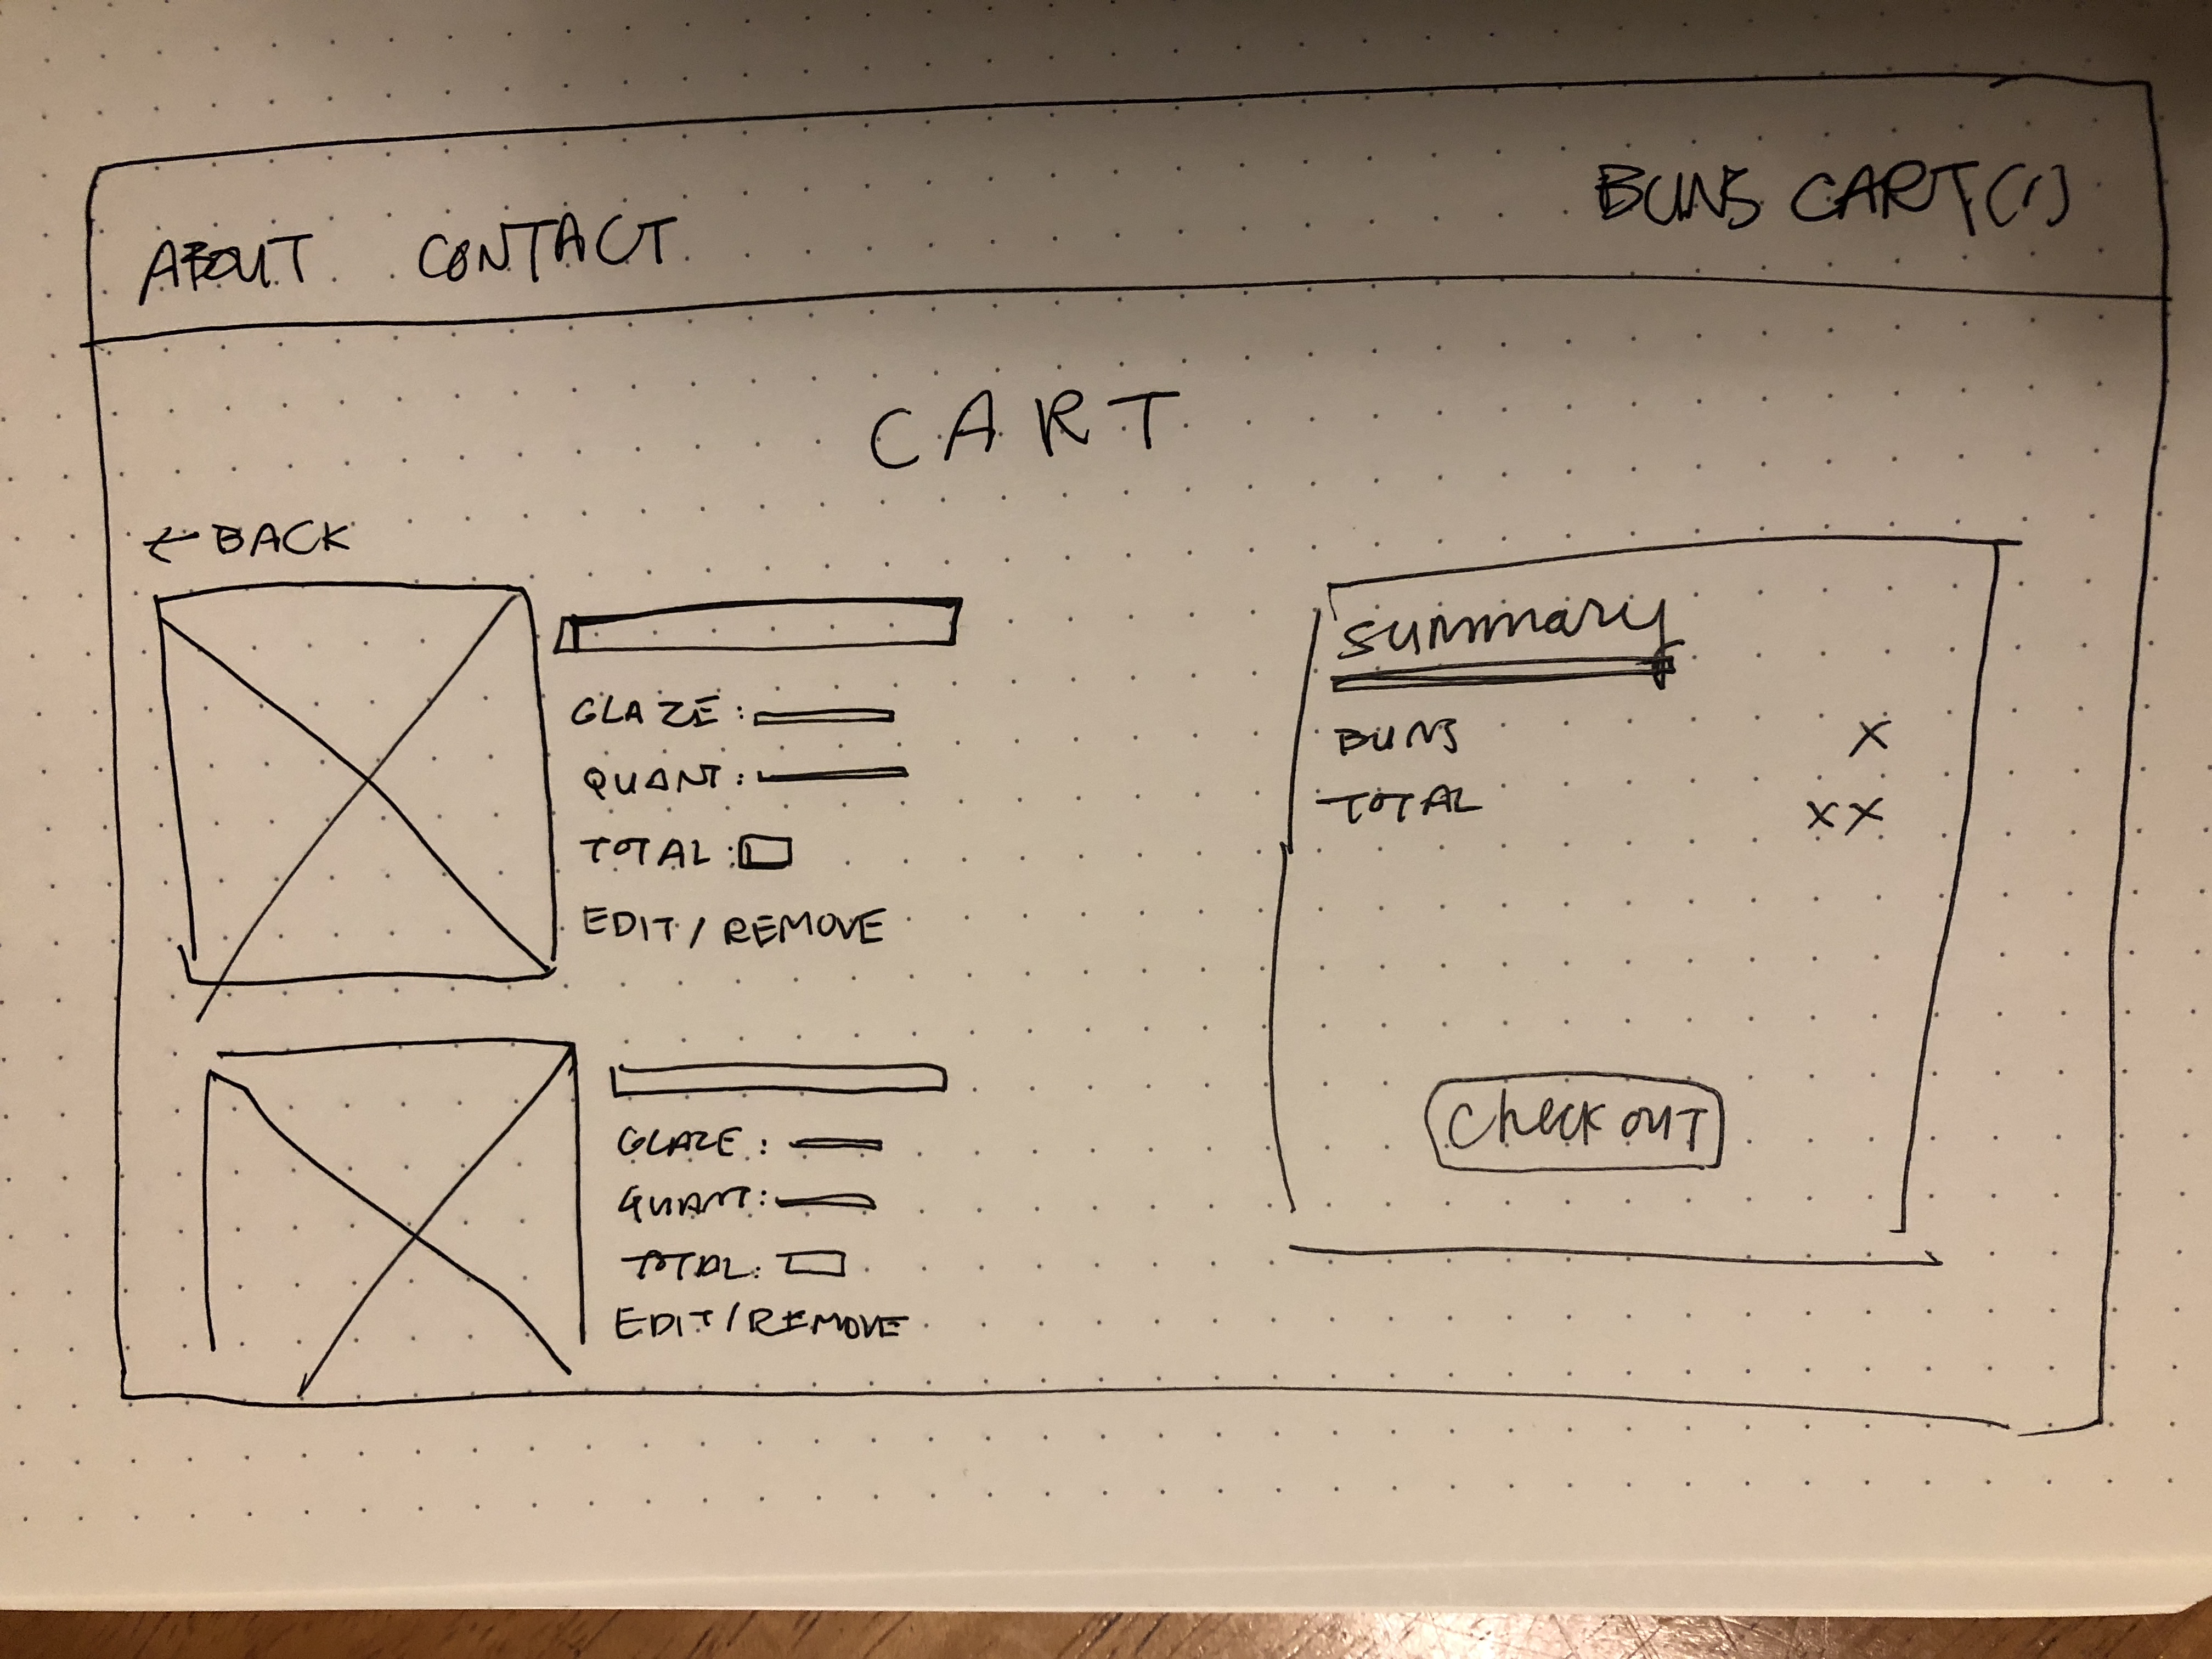 ABOUT CONTACT BUNS CART(1)
CART
← BACK
GLAZE:
QUANT:
TOTAL:
EDIT / REMOVE
GLAZE:
QUANT:
TOTAL:
EDIT / REMOVE
Summary
BUNS X
TOTAL XX
Check out